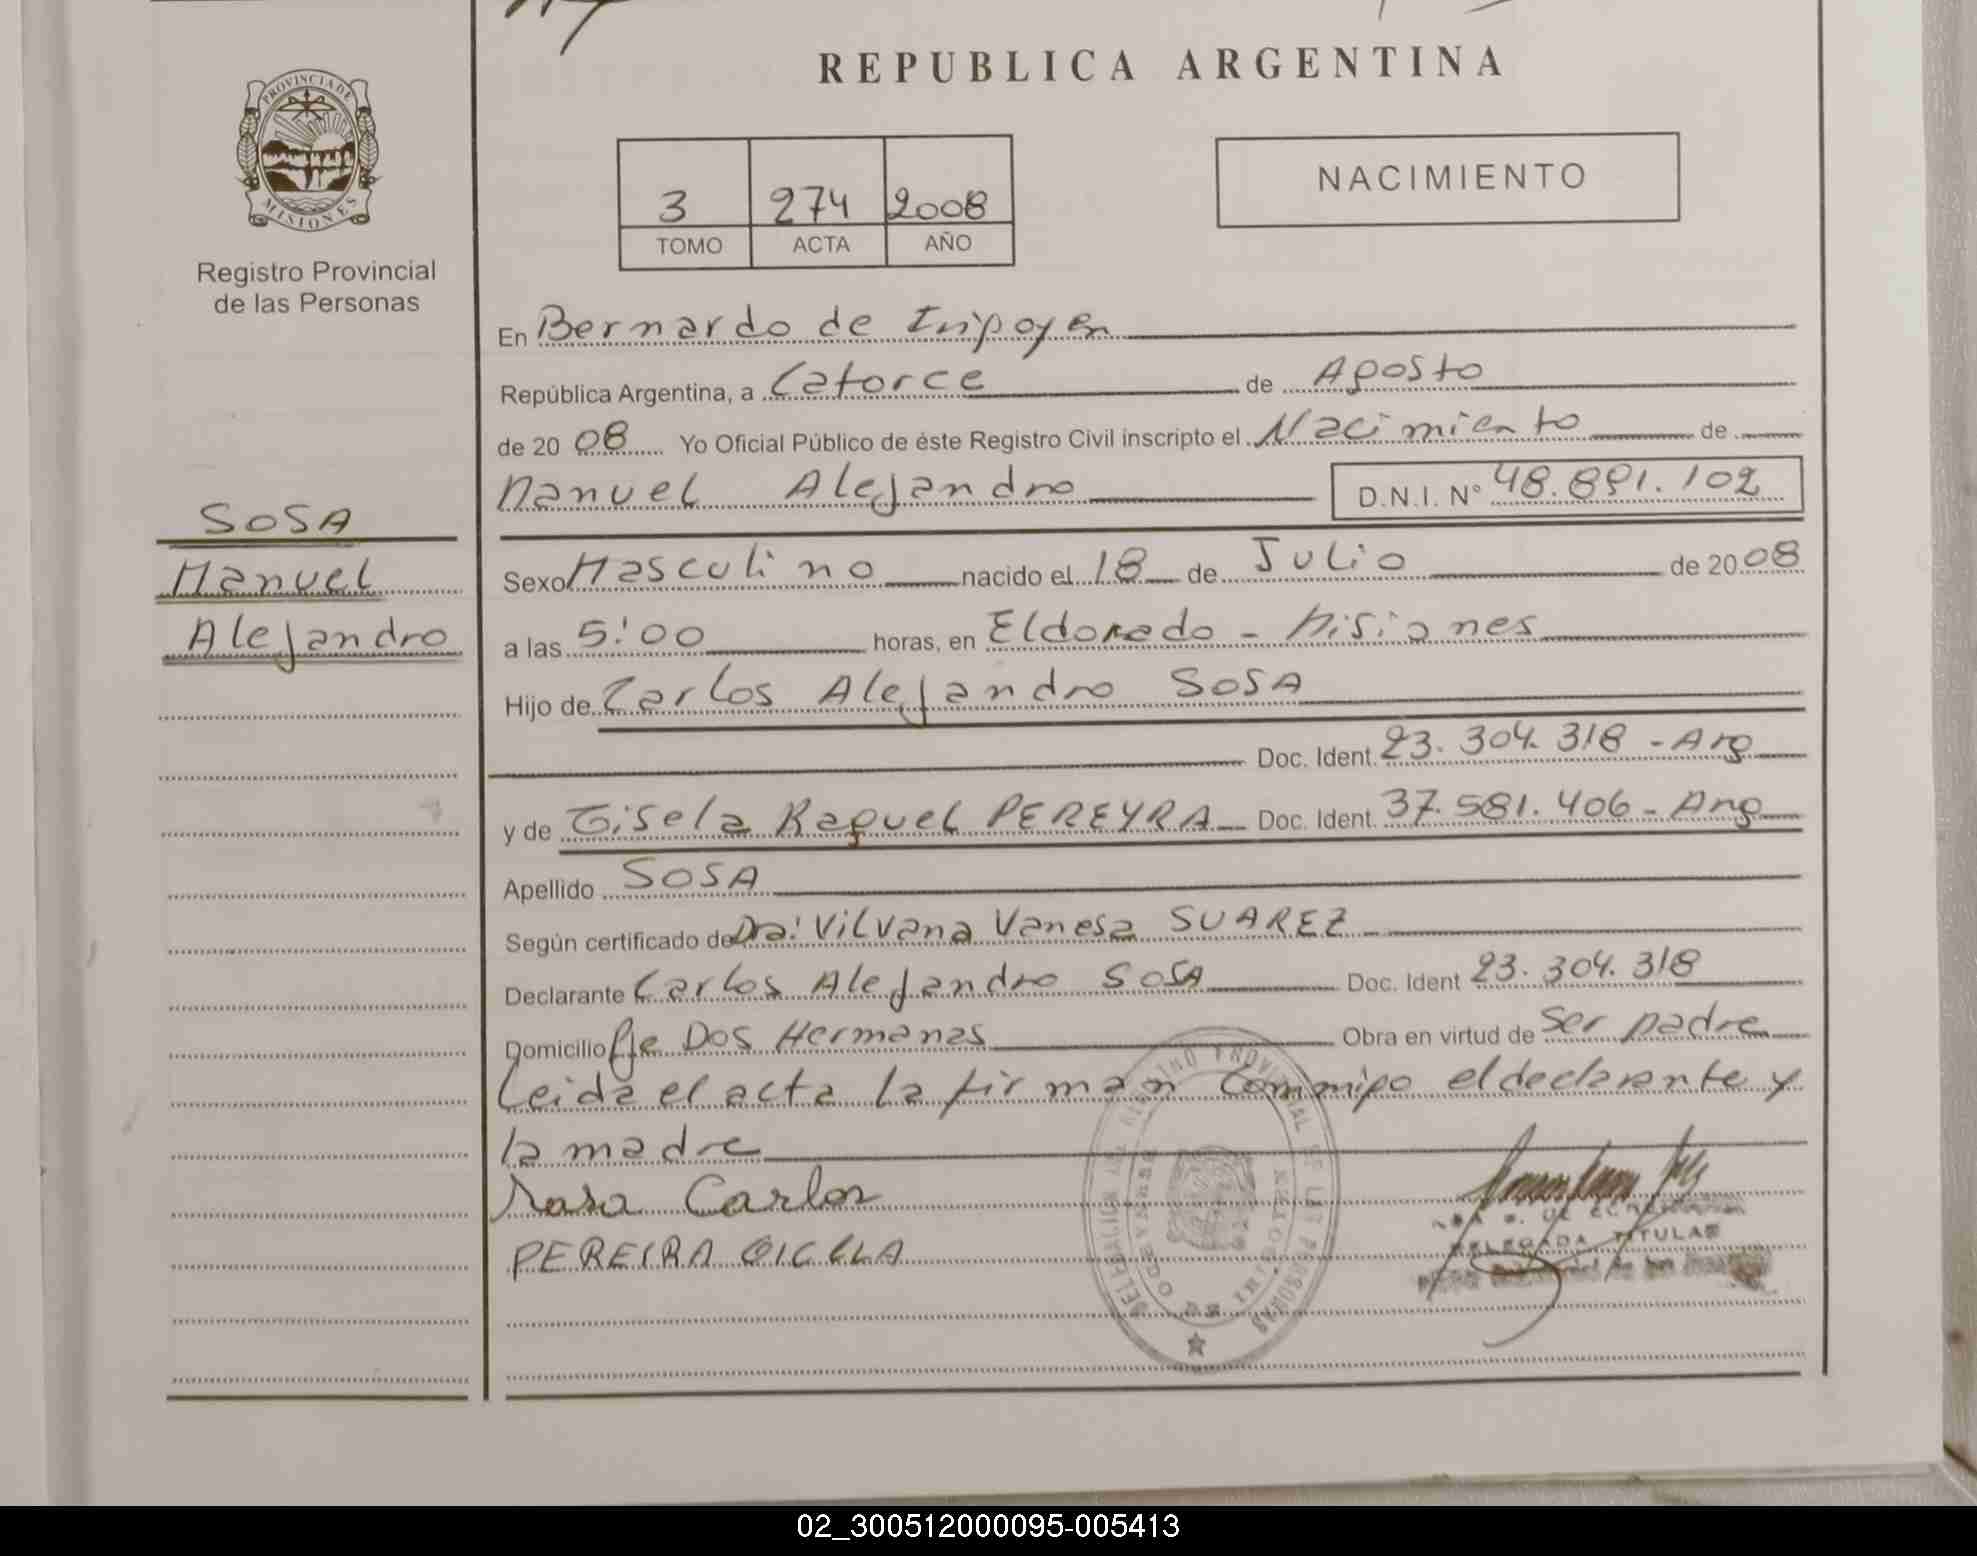 REPUBLICA ARGENTINA
PROVINCIA DE
MISIONES
Registro Provincial
de las Personas
3 274 2008
TOMO ACTA AÑO
NACIMIENTO
SOSA
Manuel
Alejandro
En Bernardo de Irigoyen
República Argentina, a Catorce de Agosto
de 20 08 Yo Oficial Público de éste Registro Civil inscripto el Nacimiento de
Manuel Alejandro D.N.I. N° 48.891.102
Sexo Masculino nacido el 18 de Julio de 20 08
a las 5:00 horas, en Eldorado - Misiones
Hijo de Carlos Alejandro SOSA
Doc. Ident. 23.304.318 - Arg
y de Gisela Raquel PEREYRA Doc. Ident. 37.581.406 - Arg
Apellido SOSA
Según certificado de Dra: Vilvana Vanesa SUAREZ
Declarante Carlos Alejandro SOSA Doc. Ident 23.304.318
Domicilio Pje Dos Hermanas Obra en virtud de Ser padre
Leida el acta la firman conmigo el declarante y
la madre
Sosa Carlos
PEREIRA
DELEGADA TITULAR
02_300512000095-005413